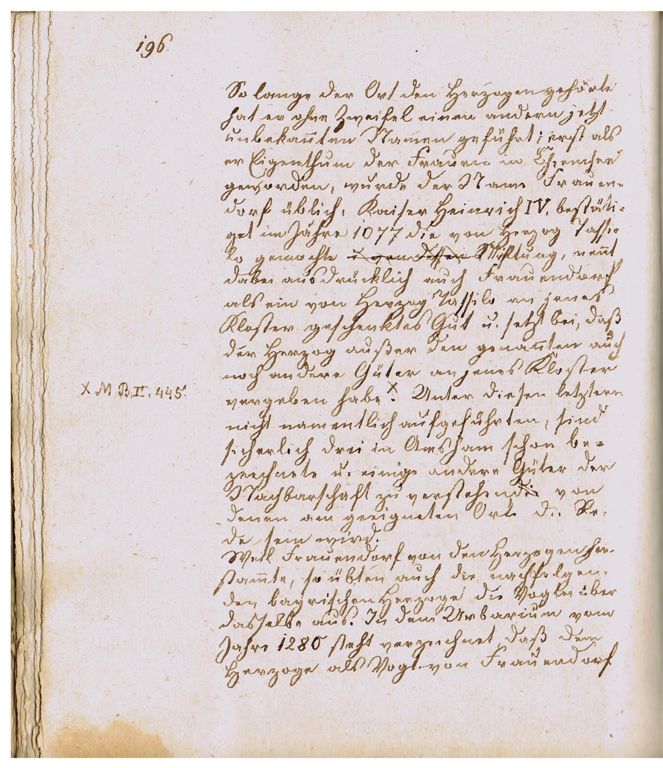 196.
So lange der Ort den Herzogen gehörte
hat er ohne Zweifel einen andern jetzt
unbekan̄ten Namen geführt; erst als
er Eigenthum der Frauen in Chiemsee
geworden, wurde der Name Frauen-
dorf üblich. Kaiser Heinrich IV. bestäti-
get im Jahre 1077 die von Herzog Tassi-
lo gemachte Stiftung, nen̄t
dabei ausdrücklich auch Frauendorf
als ein von Herzog Tassilo an jenes
Kloster geschenktes Gut u. setzt bei, daß
der Herzog außer den genan̄ten auch
noch andere Güter an jenes Kloster
X M. B. II. 445.
vergeben habe. X Unter diesen letztern
nicht namentlich aufgeführten, sind
sicherlich drei in Amsham schon be-
zeichnete u. einige andere Güter der
Nachbarschaft zu verstehen, von
denen am geeigneten Orte die Re-
de sein wird.
Weil Frauendorf von den Herzogen her-
stam̄te, so übten auch die nachfolgen-
den bayrischen Herzoge die Vogtei über
dasselbe aus. In dem Urbarium vom
Jahre 1280 steht verzeichnet, daß dem
Herzoge als Vogt von Frauendorf